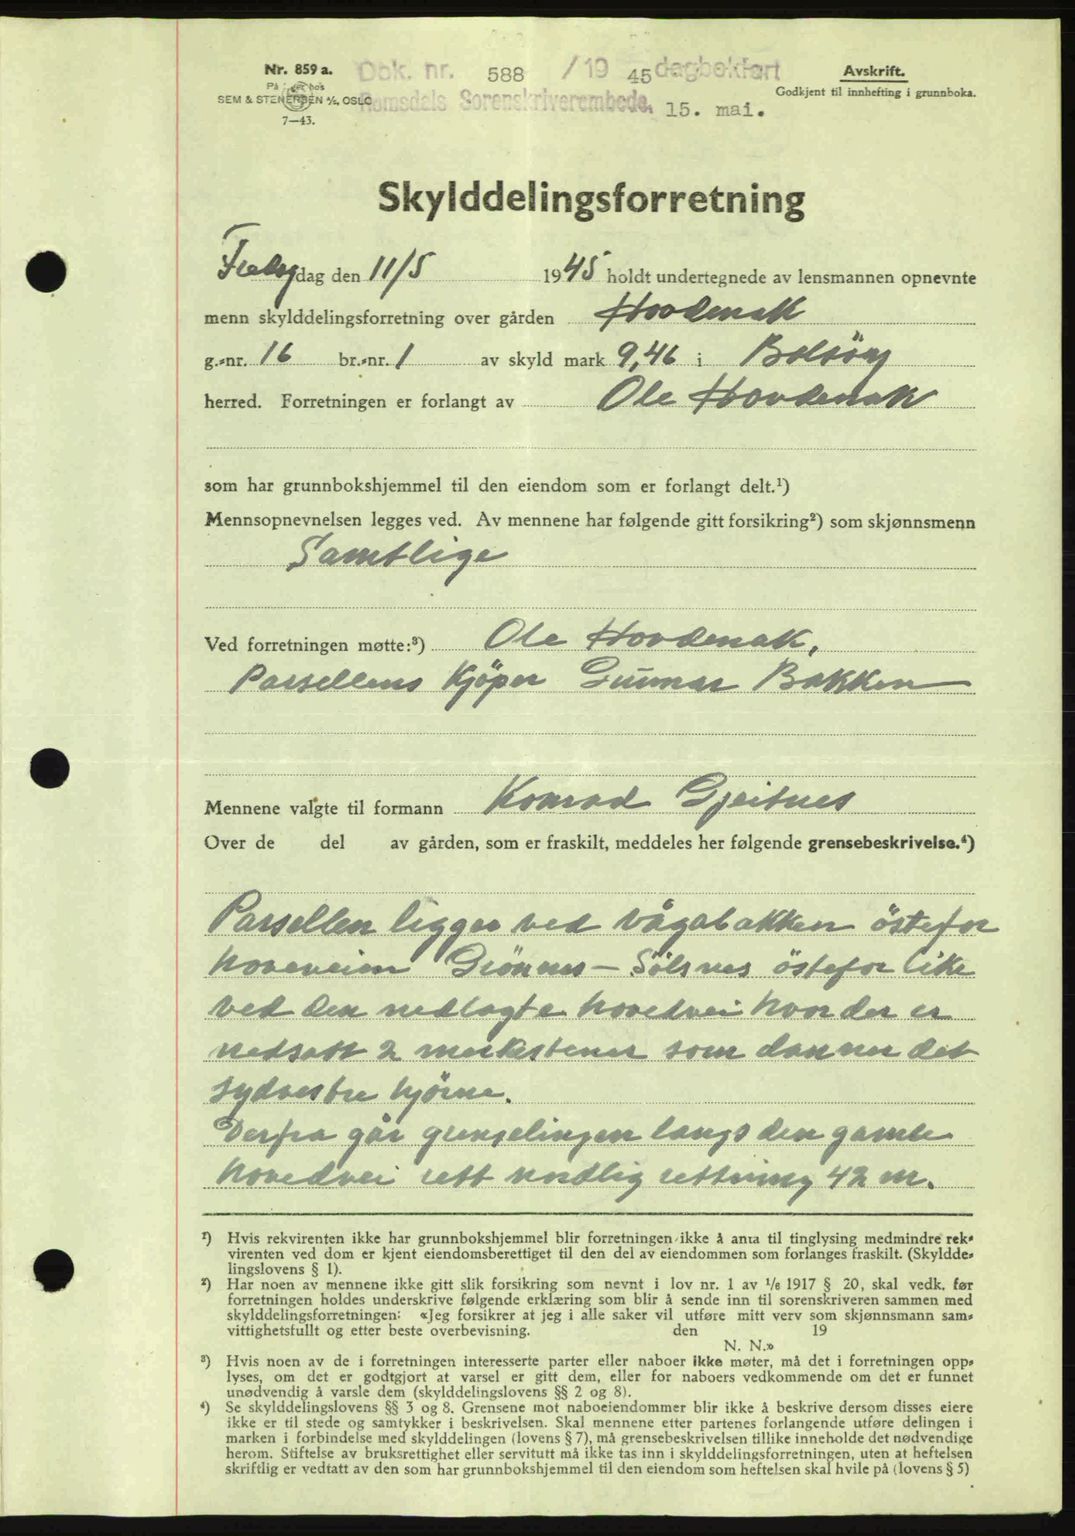 Nr. 859 a.
På lager hos
SEM & STENERSEN A/S, OSLO
7—43.
Dok. nr. 588 /19 45 dagbokført
Romsdals Sorenskriverembede, 15. mai.
Avskrift.
Godkjent til innhefting i grunnboka.
Skylddelingsforretning
Fredag dag den 11/5 1945 holdt undertegnede av lensmannen opnevnte
menn skylddelingsforretning over gården Hovdenak
g.-nr. 16 br.-nr. 1 av skyld mark 9,46 i Bolsöy
herred. Forretningen er forlangt av Ole Hovdenak
som har grunnbokshjemmel til den eiendom som er forlangt delt.¹)
Mennsopnevnelsen legges ved. Av mennene har følgende gitt forsikring²) som skjønnsmenn
Samtlige
Ved forretningen møtte:³) Ole Hovdenak,
Parsellens Kjöper Gunnar Bakken
Mennene valgte til formann Konrad Gjeitnes
Over de del av gården, som er fraskilt, meddeles her følgende grensebeskrivelse.⁴)
Parsellen ligger ved Vågabakken östefor
hoveveien Grönnes – Sölsnes östefor like
ved den nedlagte hovedvei hvor der er
nedsatt 2 merkestener som danner det
sydvestre hjörne.
Derfra går grenselinjen langs den gamle
hovedvei rett nordlig rettning 42 m.
¹) Hvis rekvirenten ikke har grunnbokshjemmel blir forretningen ikke å anta til tinglysing medmindre rek-
virenten ved dom er kjent eiendomsberettiget til den del av eiendommen som forlanges fraskilt. (Skyldde-
lingslovens § 1).
²) Har noen av mennene ikke gitt slik forsikring som nevnt i lov nr. 1 av 1/6 1917 § 20, skal vedk. før
forretningen holdes underskrive følgende erklæring som blir å sende inn til sorenskriveren sammen med
skylddelingsforretningen: «Jeg forsikrer at jeg i alle saker vil utføre mitt verv som skjønnsmann sam-
vittighetsfullt og etter beste overbevisning. den 19
N. N.»
³) Hvis noen av de i forretningen interesserte parter eller naboer ikke møter, må det i forretningen opp-
lyses, om det er godtgjort at varsel er gitt dem, eller for naboers vedkommende om det er funnet
unødvendig å varsle dem (skylddelingslovens §§ 2 og 8).
⁴) Se skylddelingslovens §§ 3 og 8. Grensene mot naboeiendommer blir ikke å beskrive dersom disses eiere
ikke er til stede og samtykker i beskrivelsen. Skal mennene etter partenes forlangende utføre delingen i
marken i forbindelse med skylddelingen (lovens § 7), må grensebeskrivelsen tillike inneholde det nødvendige
herom. Stiftelse av bruksrettighet eller servitutt må ikke tas inn i skylddelingsforretningen, uten at heftelsen
skriftlig er vedtatt av den som har grunnbokshjemmel til den eiendom som heftelsen skal hvile på (lovens § 5)